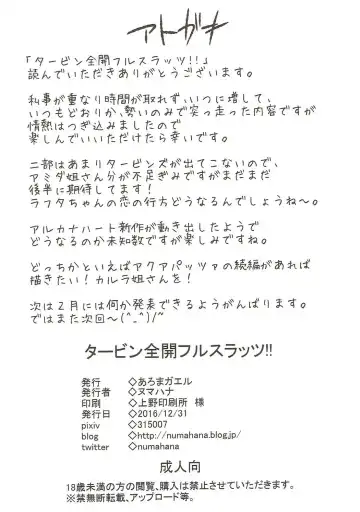 アトガキ
「タービン全開フルスラッツ!!」
読んでいただきありがとうございます。
私事が重なり時間が取れず、いつに増して、
いつもどおりか、勢いのみで突っ走った内容ですが
情熱はつぎ込みましたので
楽しんでいいただけたら幸いです。
二部はあまりタービンズが出てこないので、
アミダ姐さん分が不足ぎみですがまだまだ
後半に期待してます!
ラフタちゃんの恋の行方どうなるんでしょうね〜。
アルカナハート新作が動き出したようで
どうなるのか未知数ですが楽しみですね。
どっちかといえばアクアパッツァの続編があれば
描きたい!カルラ姐さんを!
次は2月には何か発表できるようがんばります。
ではまた次回〜(^_^)/~
タービン全開フルスラッツ!!
発行 ◇あろまガエル
発行者 ◇ヌマハナ
印刷 ◇上野印刷所 様
発行日 ◇2016/12/31
pixiv ◇315007
blog ◇http://numahana.blog.jp/
twitter ◇numahana
成人向
18歳未満の方の閲覧、購入は禁止させていただきます。
※禁無断転載、アップロード等。